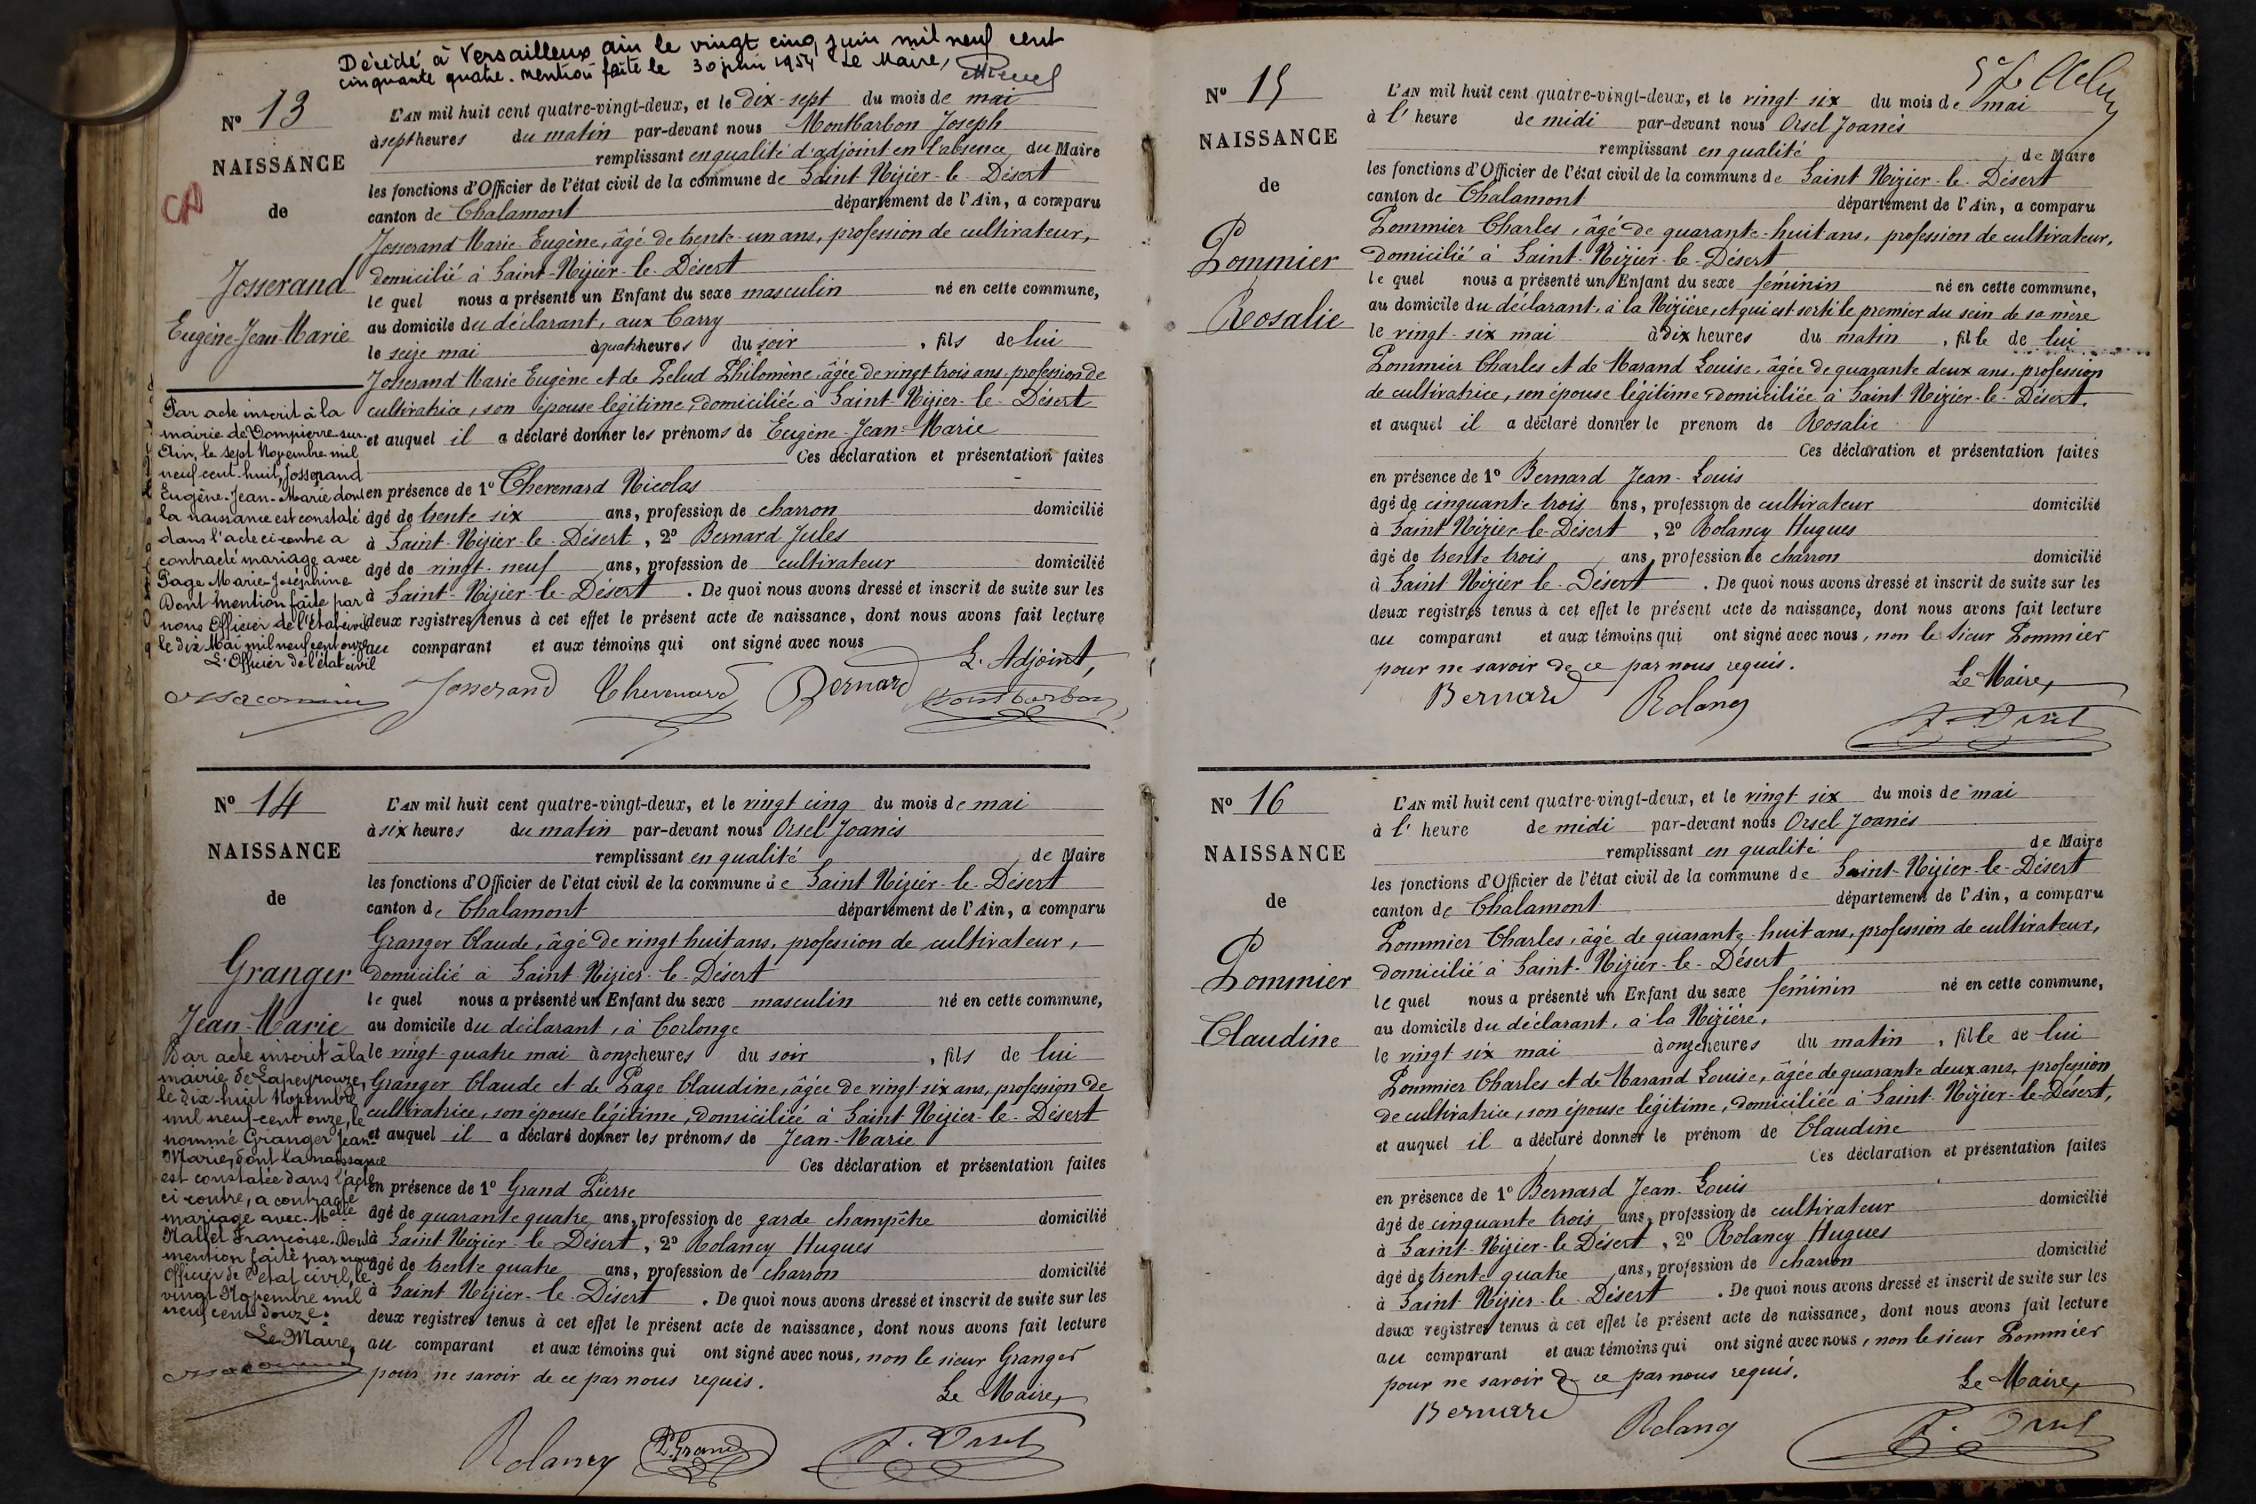 Décédé à Versailleux ain le vingt cinq juin mil neuf cent
cinquante quatre. mention faite le 30 juin 1954 Le Maire,
N° 13
NAISSANCE
de
Josserand
Eugène-Jean-Marie
L'AN mil huit cent quatre-vingt-deux, et le dix-sept du mois de mai
à sept heures du matin par-devant nous Montbarbon Joseph
remplissant en qualité d'adjoint en l'absence du Maire
les fonctions d'Officier de l'état civil de la commune de Saint Nizier-le-Désert
canton de Chalamont département de l'Ain, a comparu
Josserand Marie-Eugène, âgé de trente-un ans, profession de cultivateur,
domicilié à Saint-Nizier-le-Désert
le quel nous a présenté un Enfant du sexe masculin né en cette commune,
au domicile du déclarant, aux Carry
le seize mai à quatre heures du soir, fils de lui
Josserand Marie Eugène et de Pelud Philomène âgée de vingt trois ans profession de
cultivatrice, son épouse légitime, domiciliée à Saint-Nizier-le-Désert
et auquel il a déclaré donner les prénoms de Eugène-Jean-Marie
Ces déclaration et présentation faites
en présence de 1° Thevenard Nicolas
âgé de trente six ans, profession de charron domicilié
à Saint-Nizier-le-Désert, 2° Bernard Jules
âgé de vingt-neuf ans, profession de cultivateur domicilié
à Saint-Nizier-le-Désert. De quoi nous avons dressé et inscrit de suite sur les
deux registres tenus à cet effet le présent acte de naissance, dont nous avons fait lecture
au comparant et aux témoins qui ont signé avec nous
L'Adjoint,
Josserand Thevenard Bernard Montbarbon
Par acte inscrit à la
mairie de Dompierre-sur-
Ain, le sept Novembre mil
neuf-cent-huit, Josserand
Eugène-Jean-Marie dont
la naissance est constaté
dans l'acte ci-contre a
contracté mariage avec
Page Marie-Joséphine
Dont mention faite par
nous Officier de l'Etat civil
le dix Mai mil neuf cent onze
L'Officier de l'état civil
N° 14
NAISSANCE
de
Granger
Jean-Marie
L'AN mil huit cent quatre-vingt-deux, et le vingt cinq du mois de mai
à six heures du matin par-devant nous Orsel Joanès
remplissant en qualité de Maire
les fonctions d'Officier de l'état civil de la commune de Saint Nizier-le-Désert
canton de Chalamont département de l'Ain, a comparu
Granger Claude, âgé de vingt huit ans, profession de cultivateur,
domicilié à Saint Nizier-le-Désert
le quel nous a présenté un Enfant du sexe masculin né en cette commune,
au domicile du déclarant, à Corlonge
le vingt-quatre mai à onze heures du soir, fils de lui
Granger Claude et de Page Claudine, âgée de vingt six ans, profession de
cultivatrice, son épouse légitime, domiciliée à Saint Nizier-le-Désert
et auquel il a déclaré donner les prénoms de Jean-Marie
Ces déclaration et présentation faites
en présence de 1° Grand Pierre
âgé de quarante quatre ans, profession de garde champêtre domicilié
à Saint Nizier-le Désert, 2° Rolancy Hugues
âgé de trente quatre ans, profession de charron domicilié
à Saint Nizier-le-Désert. De quoi nous avons dressé et inscrit de suite sur les
deux registres tenus à cet effet le présent acte de naissance, dont nous avons fait lecture
au comparant et aux témoins qui ont signé avec nous, non le sieur Granger
pour ne savoir de ce par nous requis.
Le Maire,
Rolancy P. Grand J. Orsel
Par acte inscrit à la
mairie de Lapeyrouze,
le dix-huit Novembre
mil neuf-cent onze, le
nommé Granger Jean-
Marie, dont la naissance
est constatée dans l'acte
ci contre, a contracté
mariage avec Melle
Mallet Françoise. Dont
mention faite par nous
Officier de l'état civil, le
vingt Novembre mil
neuf cent douze.
Le Maire,
N° 15
NAISSANCE
de
Pommier
Rosalie
L'AN mil huit cent quatre-vingt-deux, et le vingt six du mois de mai
à l'heure de midi par-devant nous Orsel Joanès
remplissant en qualité de Maire
les fonctions d'Officier de l'état civil de la commune de Saint Nizier-le-Désert
canton de Chalamont département de l'Ain, a comparu
Pommier Charles, âgé de quarante-huit ans, profession de cultivateur,
domicilié à Saint-Nizier-le-Désert
le quel nous a présenté un Enfant du sexe féminin né en cette commune,
au domicile du déclarant, à la Nizière, et qui est sorti le premier du sein de sa mère
le vingt-six mai à dix heures du matin, fille de lui
Pommier Charles et de Marand Louise, âgée de quarante deux ans, profession
de cultivatrice, son épouse légitime domiciliée à Saint-Nizier-le-Désert.
et auquel il a déclaré donner le prenom de Rosalie
Ces déclaration et présentation faites
en présence de 1° Bernard Jean-Louis
âgé de cinquante trois ans, profession de cultivateur domicilié
à Saint Nizier-le-Désert, 2° Rolancy Hugues
âgé de trente trois ans, profession de charron domicilié
à Saint Nizier le-Désert. De quoi nous avons dressé et inscrit de suite sur les
deux registres tenus à cet effet le présent acte de naissance, dont nous avons fait lecture
au comparant et aux témoins qui ont signé avec nous, non le Sieur Pommier
pour ne savoir de ce par nous requis.
Le Maire,
Bernard Rolancy J. Orsel
N° 16
NAISSANCE
de
Pommier
Claudine
L'AN mil huit cent quatre-vingt-deux, et le vingt six du mois de mai
à l'heure de midi par-devant nous Orsel Joanès
remplissant en qualité de Maire
les fonctions d'Officier de l'état civil de la commune de Saint-Nizier-le-Désert
canton de Chalamont département de l'Ain, a comparu
Pommier Charles, âgé de quarante-huit ans, profession de cultivateur,
domicilié à Saint-Nizier-le-Désert
le quel nous a présenté un Enfant du sexe féminin né en cette commune,
au domicile du déclarant, à la Nizière,
le vingt six mai à onze heures du matin, fille de lui
Pommier Charles et de Marand Louise, âgée de quarante deux ans, profession
de cultivatrice, son épouse légitime, domiciliée à Saint-Nizier-le-Désert,
et auquel il a déclaré donner le prénom de Claudine
Ces déclaration et présentation faites
en présence de 1° Bernard Jean-Louis
âgé de cinquante trois ans, profession de cultivateur domicilié
à Saint-Nizier-le Désert, 2° Rolancy Hugues
âgé de trente quatre ans, profession de charron domicilié
à Saint Nizier-le-Désert. De quoi nous avons dressé et inscrit de suite sur les
deux registres tenus à cet effet le présent acte de naissance, dont nous avons fait lecture
au comparant et aux témoins qui ont signé avec nous, non le sieur Pommier
pour ne savoir de ce par nous requis.
Le Maire,
Bernard Rolancy J. Orsel